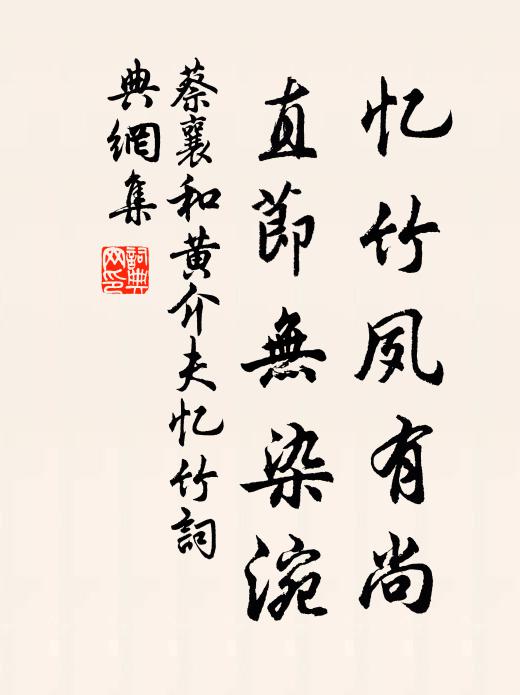 忆竹夙有尚
直節無染涴
蔡襄和黄介夫忆竹詞
典網集
詞典
网印